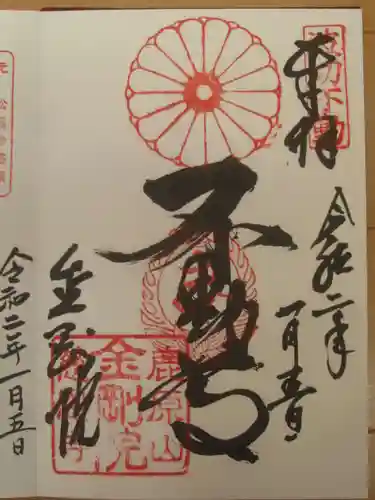 奉拝
令和二年
一月五日
不動尊
金剛院
鹿原山
金剛院
令和二年一月五日